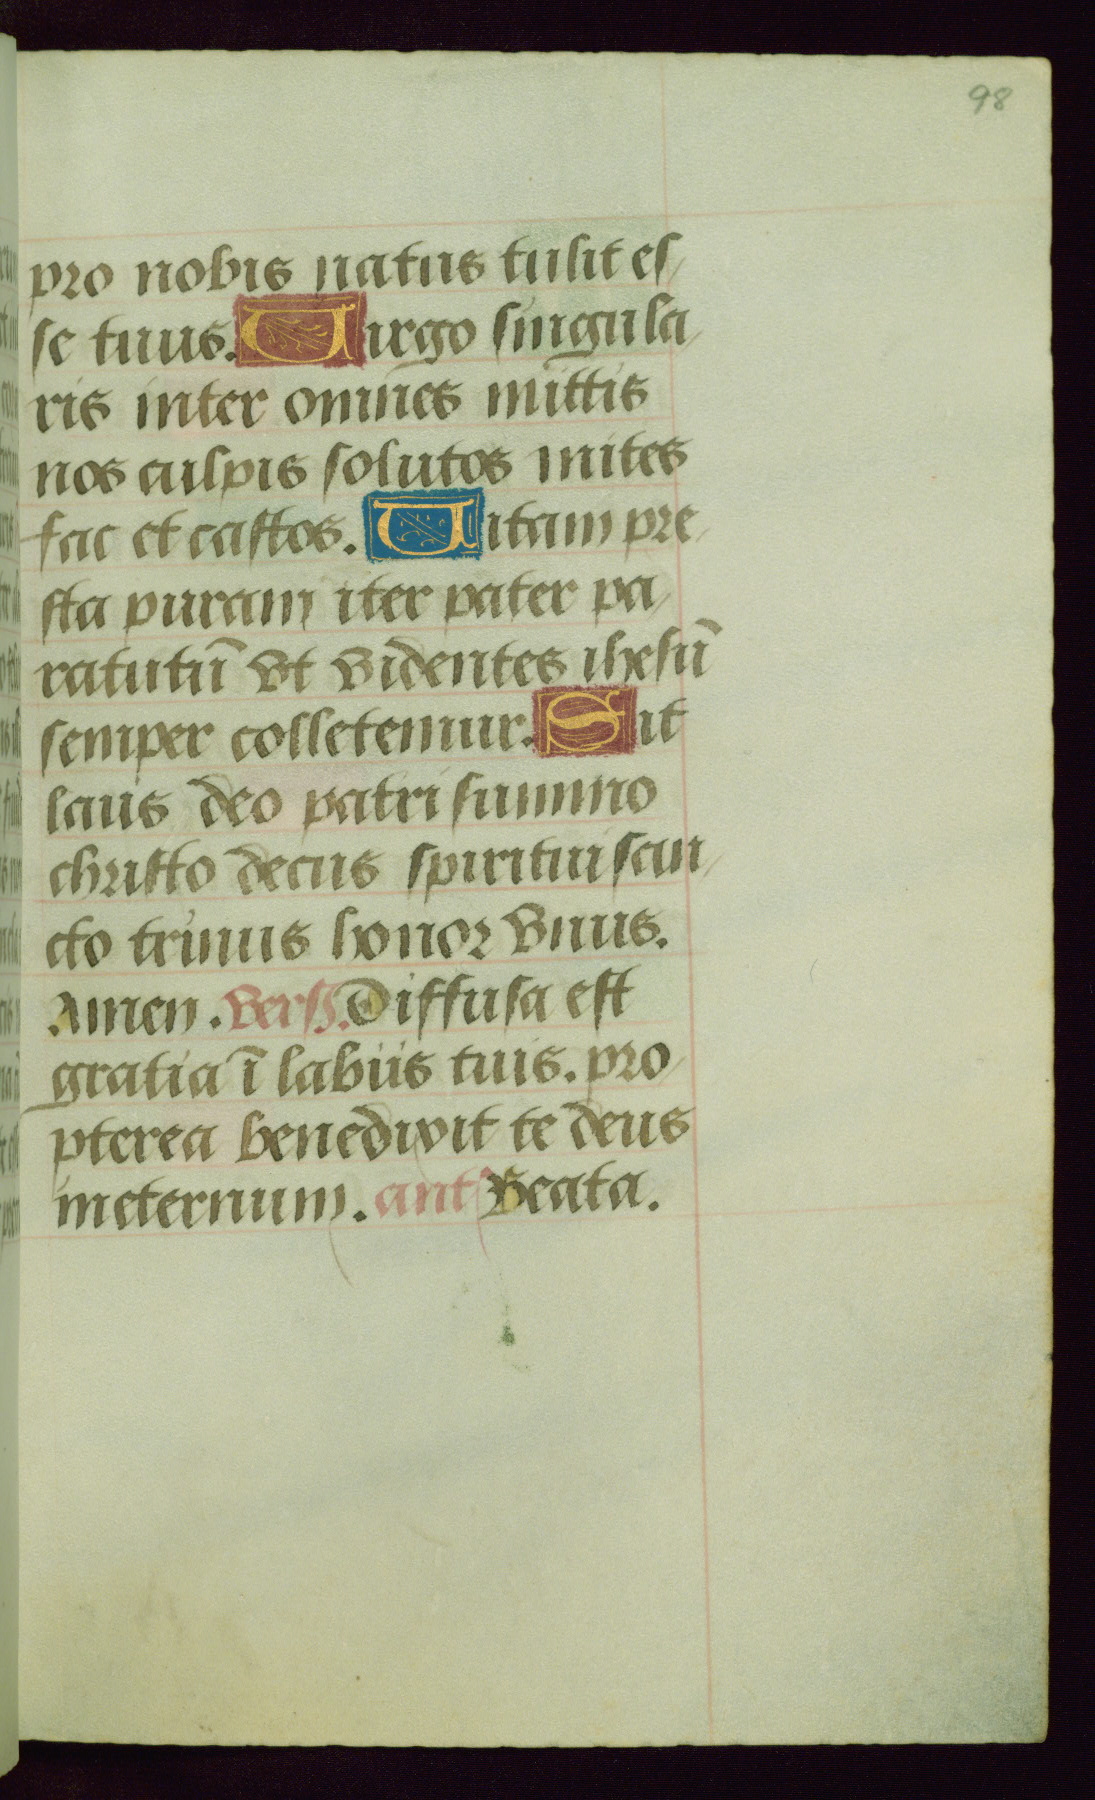 98
pro nobis natus tulit es/
se tuus. Uirgo singula/
ris inter omnes mittis
nos culpis solutos mites
fac et castos. Uitam pre/
sta puram iter pater pa/
ratutū vt videntes ihesū
semper colletemur. Sit
laus deo patri summo
christo decus spiritui san/
cto trinus honor vnus.
Amen. vers. Diffusa est
gratia ī labiis tuis. pro/
pterea benedixit te deus
ineternum. ant Beata.